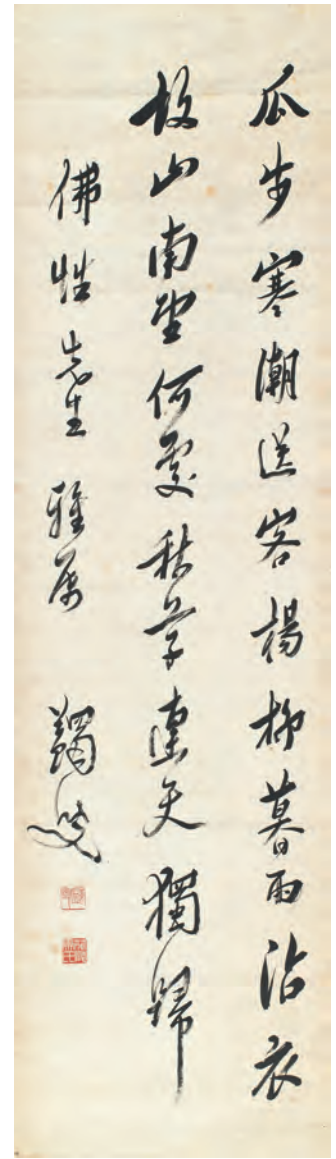 瓜步寒潮送客楊柳暮雨沾衣
故山南望何處秋草連天獨歸
佛性先生雅屬 蠲叟